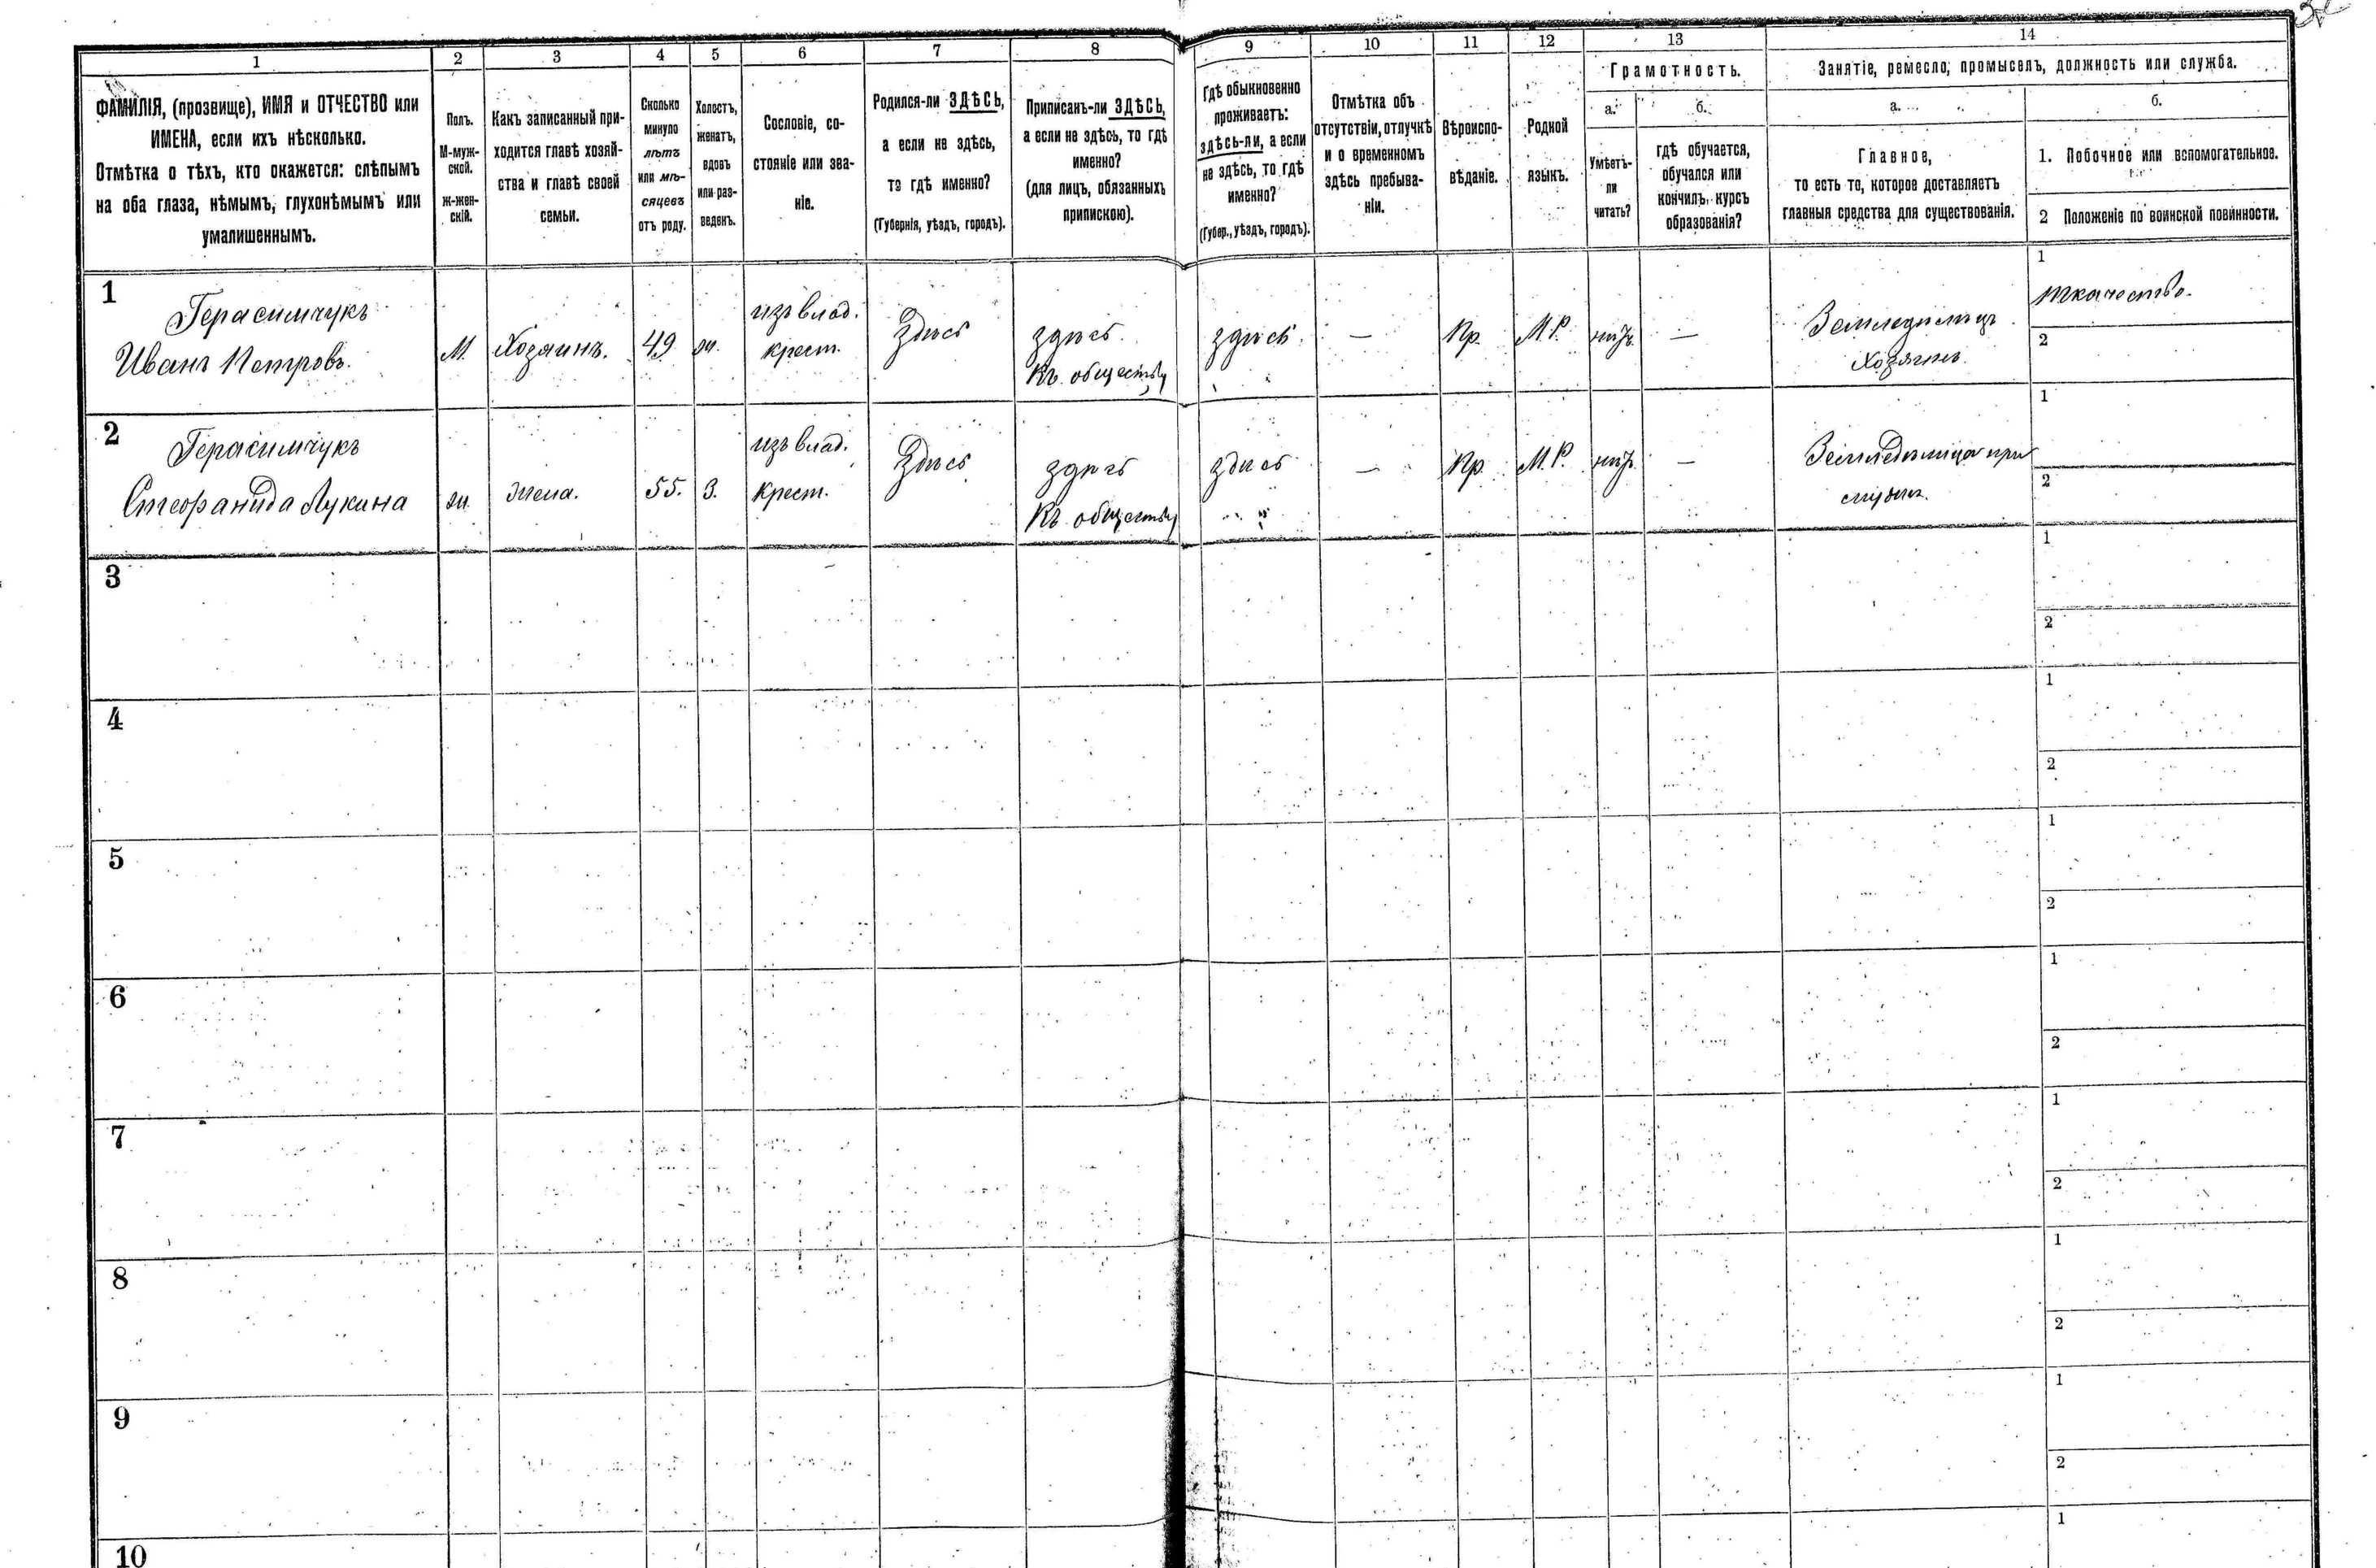 1
2
3
4
5
6
7
8
9
10
11
12
13
14
ФАМИЛІЯ, (прозвище), ИМЯ и ОТЧЕСТВО или
ИМЕНА, если ихъ нѣсколько.
Отмѣтка о тѣхъ, кто окажется: слѣпымъ
на оба глаза, нѣмымъ, глухонѣмымъ или
умалишеннымъ.
Полъ.
М-муж-
ской.
ж-жен-
скій.
Какъ записанный при-
ходится главѣ хозяй-
ства и главѣ своей
семьи.
Сколько
минуло
лѣтъ
или мѣ-
сяцевъ
отъ роду.
Холостъ,
женатъ,
вдовъ
или раз-
веденъ.
Сословіе, со-
стояніе или зва-
ніе.
Родился-ли ЗДѢСЬ,
а если не здѣсь,
то гдѣ именно?
(Губернія, уѣздъ, городъ).
Приписанъ-ли ЗДѢСЬ,
а если не здѣсь, то гдѣ
именно?
(для лицъ, обязанныхъ
припискою).
Гдѣ обыкновенно
проживаетъ:
здѣсь-ли, а если
не здѣсь, то гдѣ
именно?
(Губер., уѣздъ, городъ).
Отмѣтка объ
отсутствіи, отлучкѣ
и о временномъ
здѣсь пребыва-
ніи.
Вѣроиспо-
вѣданіе.
Родной
языкъ.
Грамотность.
а.
б.
Умѣетъ-
ли
читать?
гдѣ обучается,
обучался или
кончилъ курсъ
образованія?
Занятіе, ремесло, промыселъ, должность или служба.
а.
б.
Главное,
то есть то, которое доставляетъ
главныя средства для существованія.
1. Побочное или вспомогательное.
2 Положеніе по воинской повинности.
1
Герасимчукъ
Иванъ Петровъ.
М.
Хозяинъ.
49
ж.
изъ влад.
крест.
Здѣсь
здѣсь.
Къ обществу
здѣсь.
—
Пр.
М.Р.
нѣтъ
—
Земледѣлецъ
Хозяинъ.
1
Ткачество.
2
2
Герасимчукъ
Стефанида Лукина
ж
жена.
55.
З.
изъ влад.
крест.
Здѣсь
здѣсь
Къ обществу
здѣсь
—
Пр.
М.Р.
нѣтъ
—
Земледѣлица при
мужѣ.
1
2
3
1
2
4
1
2
5
1
2
6
1
2
7
1
2
8
1
2
9
1
2
10
1